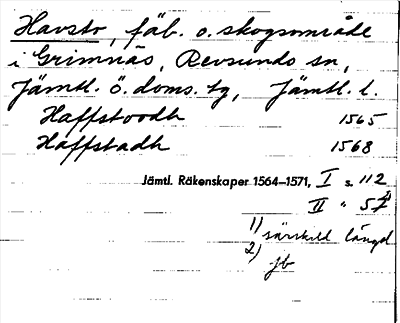 Havsto, fäb. o. skogsområde
i Grimnäs, Revsunds sn,
Jämtl. ö. doms. tg, Jämtl. l.
Haffstoodh 1565
Haffstadh 1568
Jämtl. Räkenskaper 1564–1571, I s. 112
II " 57 2)
1) särskild längd
2) jb